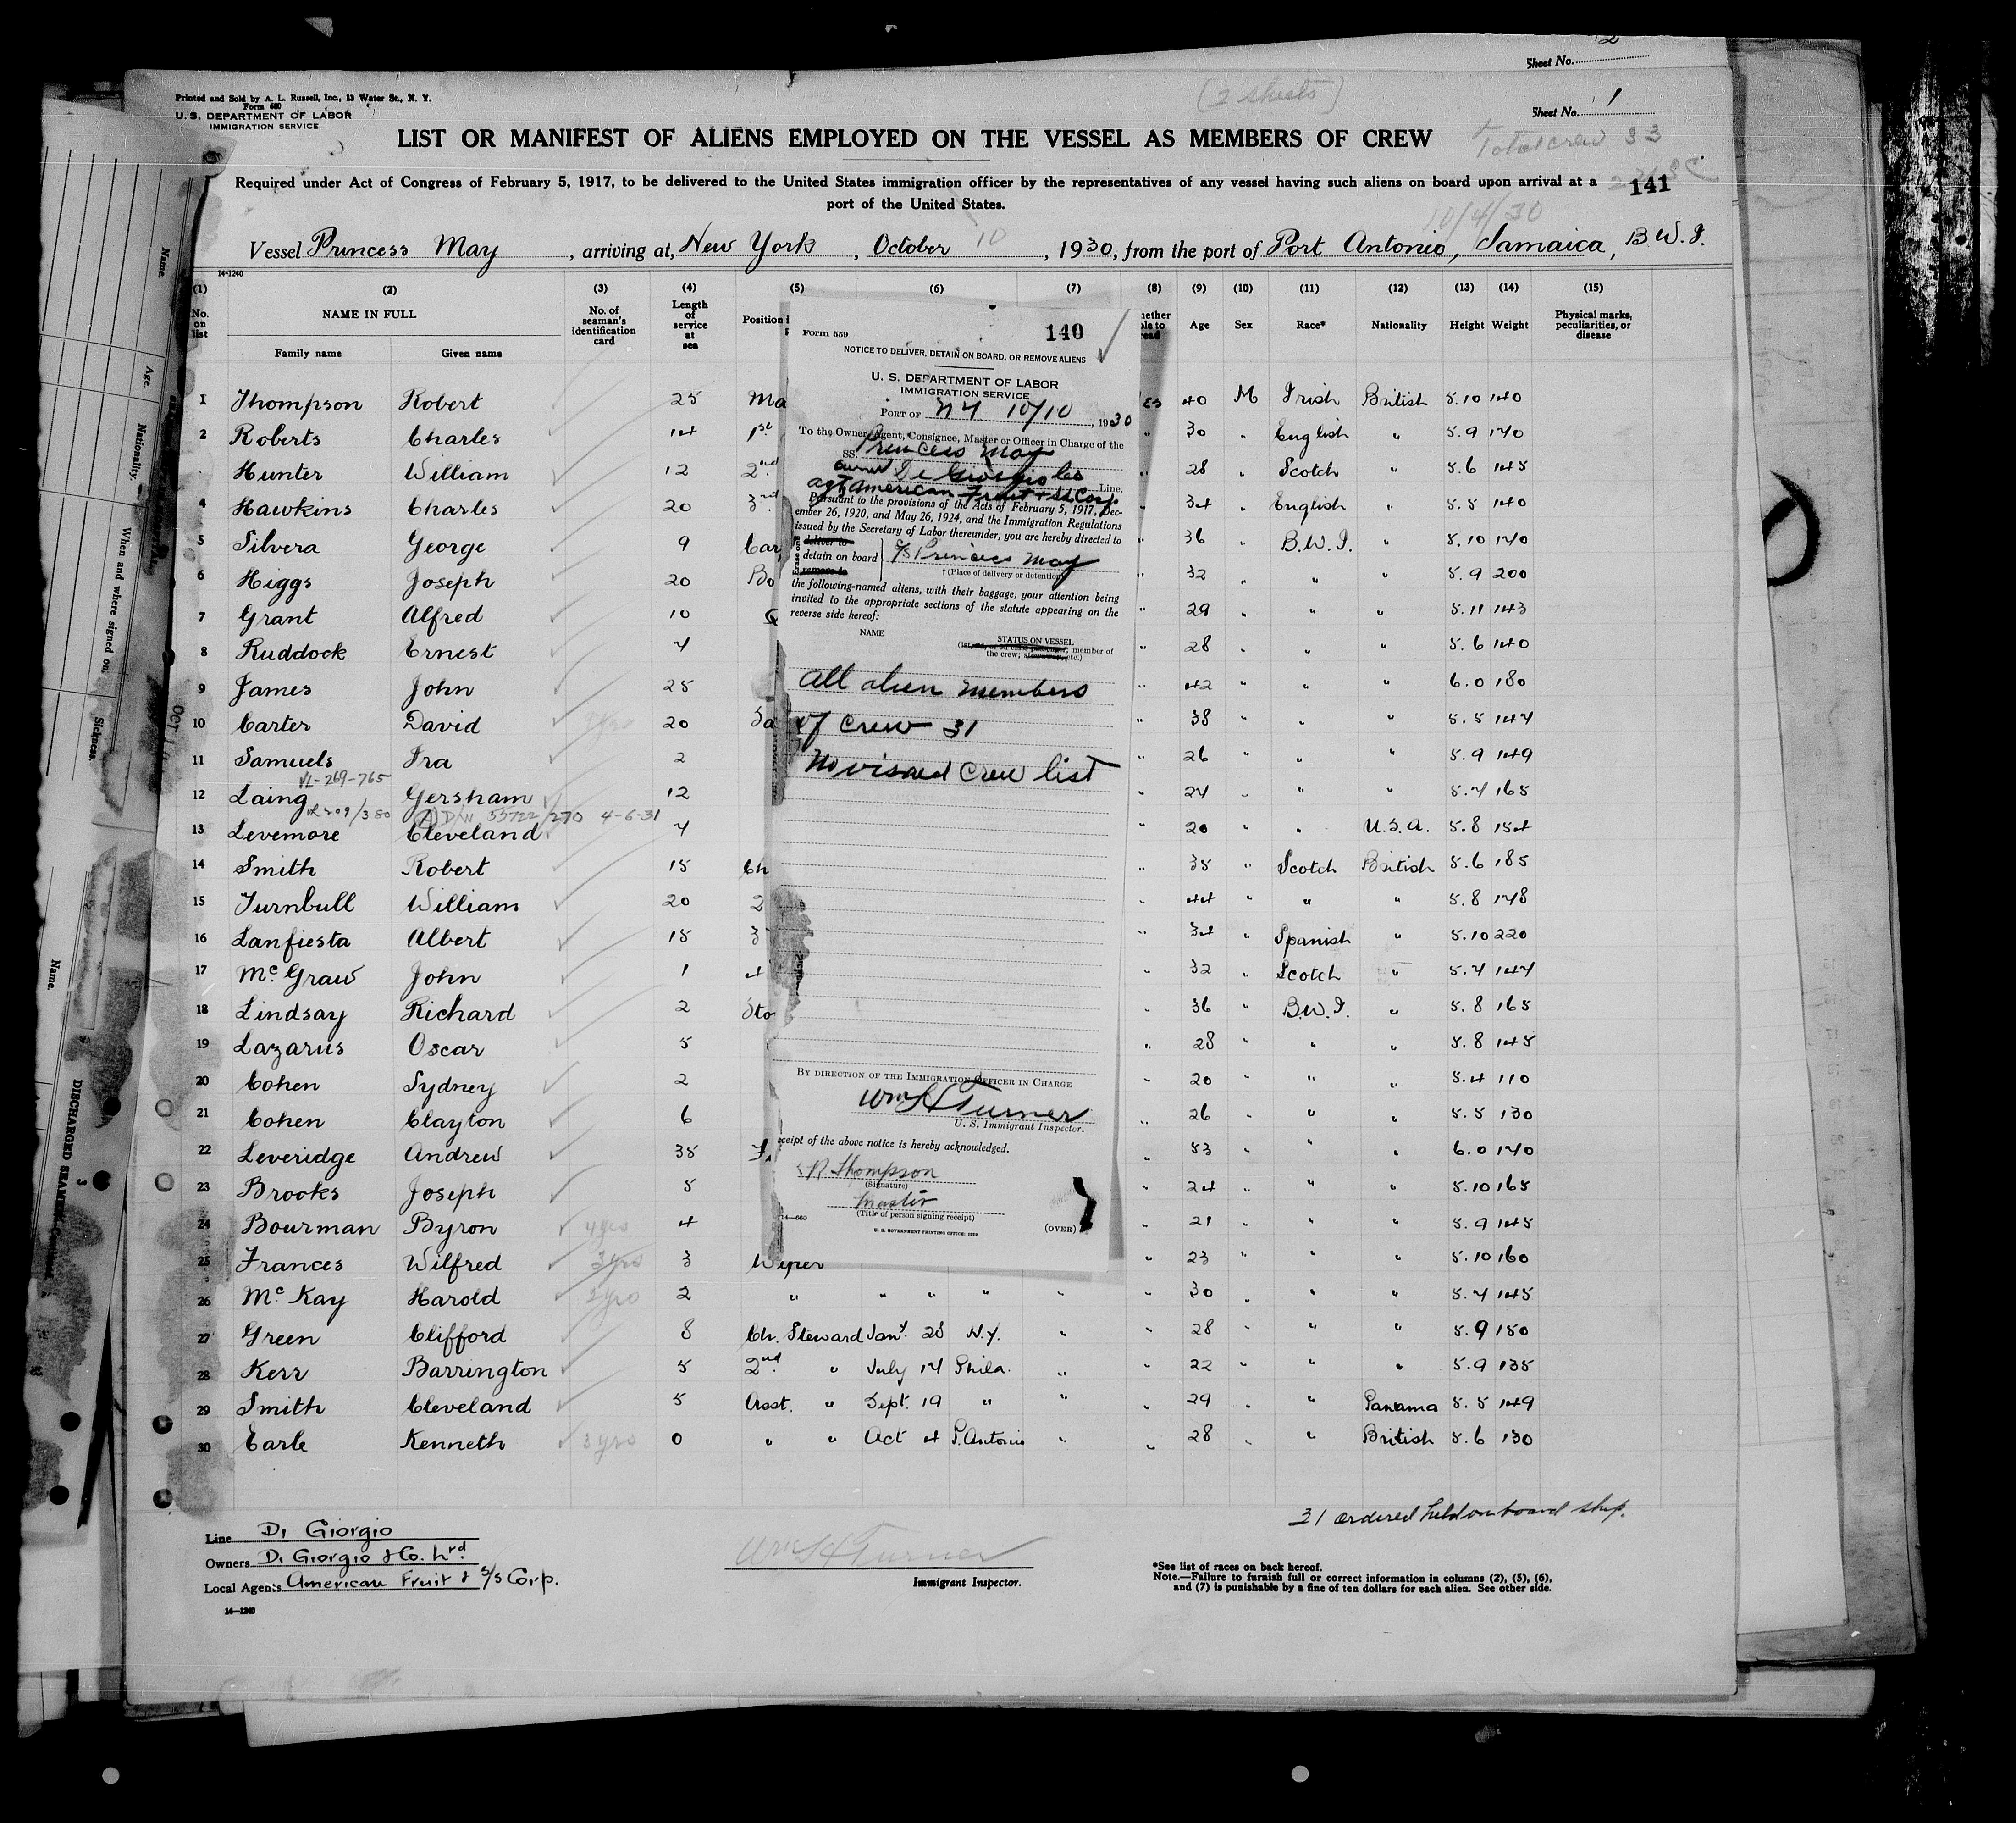 Sheet No. 2
Printed and Sold by A. L. Russell, Inc., 13 Water St., N. Y.
Form 680
U. S. DEPARTMENT OF LABOR
IMMIGRATION SERVICE
(2 sheets)
Sheet No. 1
LIST OR MANIFEST OF ALIENS EMPLOYED ON THE VESSEL AS MEMBERS OF CREW
Total crew 33
Required under Act of Congress of February 5, 1917, to be delivered to the United States immigration officer by the representatives of any vessel having such aliens on board upon arrival at a
port of the United States.
141
10/4/30
Vessel Princess May, arriving at, New York, October 10, 1930, from the port of Port Antonio, Jamaica, B.W.I.
14-1240
(1) (2) (3) (4) (5) (6) (7) (8) (9) (10) (11) (12) (13) (14) (15)
No. on list NAME IN FULL Family name Given name No. of seaman's identification card Length of service at sea Position Age Sex Race* Nationality Height Weight Physical marks, peculiarities, or disease
1 Thompson Robert 25 Ma 40 M Irish British 5.10 140
2 Roberts Charles 14 1st " 30 " English " 5.9 170
Hunter William 12 2nd " 28 " Scotch " 5.6 145
4 Hawkins Charles 20 3rd " 34 " English " 5.5 140
5 Silvera George 9 Car " 36 " B.W.I. " 5.10 170
6 Higgs Joseph 20 Bo " 32 " " " 5.9 200
7 Grant Alfred 10 Q " 29 " " " 5.11 143
8 Ruddock Ernest 7 " 28 " " " 5.6 140
9 James John 25 " 42 " " " 6.0 180
10 Carter David 20 " 38 " " " 5.5 147
11 Samuels Ira 2 " 26 " " " 5.9 149
VL-269-765
12 Laing Gersham 12 " 27 " " " 5.7 165
55722/270 4-6-31
13 Levemore Cleveland 7 " 20 " " U.S.A. 5.8 154
14 Smith Robert 15 Ch " 35 " Scotch British 5.6 185
15 Turnbull William 20 2 " 44 " " " 5.8 178
16 Lanfiesta Albert 15 3 " 34 " Spanish " 5.10 220
17 McGraw John 1 4 " 32 " Scotch " 5.7 147
18 Lindsay Richard 2 Sto " 36 " B.W.I. " 5.8 165
19 Lazarus Oscar 5 " 28 " " " 5.8 145
20 Cohen Sydney 2 " 20 " " " 5.4 110
21 Cohen Clayton 6 " 26 " " " 5.5 130
22 Leveridge Andrew 35 " 53 " " " 6.0 170
23 Brooks Joseph 5 " 24 " " " 5.10 165
24 Bourman Byron 4 yrs 4 " 21 " " " 5.9 145
25 Frances Wilfred 3 yrs 3 Wiper " 23 " " " 5.10 160
26 McKay Harold 2 " " " " " " 30 " " " 5.7 145
27 Green Clifford 8 Ch. Steward Jany. 28 N.Y. " " 28 " " " 5.9 150
28 Kerr Barrington 5 2nd " July 17 Phila. " " 22 " " " 5.9 135
29 Smith Cleveland 5 Asst. " Sept. 19 " " " 29 " " Panama 5.5 149
30 Earle Kenneth 3 yrs 0 " " Oct 4 P. Antonio " " 28 " " British 5.6 130
Form 559
140
NOTICE TO DELIVER, DETAIN ON BOARD, OR REMOVE ALIENS
U. S. DEPARTMENT OF LABOR
IMMIGRATION SERVICE
PORT OF NY 10/10, 1930
To the Owner, Agent, Consignee, Master or Officer in Charge of the
SS. Princess May
owner Di Giorgio Co Line.
agt American Fruit & SS Corp.
Pursuant to the provisions of the Acts of February 5, 1917, Dec-
ember 26, 1920, and May 26, 1924, and the Immigration Regulations
issued by the Secretary of Labor thereunder, you are hereby directed to
Erase one deliver to
detain on board S/S Princess May
remove to † (Place of delivery or detention)
the following-named aliens, with their baggage, your attention being
invited to the appropriate sections of the statute appearing on the
reverse side hereof:
NAME STATUS ON VESSEL
(1st, 2d, or 3d class passenger, member of
the crew; stowaway, etc.)
All alien members
of crew 31
No visaed crew list
BY DIRECTION OF THE IMMIGRATION OFFICER IN CHARGE
Wm H Turner
U. S. Immigrant Inspector.
ceipt of the above notice is hereby acknowledged.
R Thompson
(Signature)
Master
(Title of person signing receipt)
14—660
U. S. GOVERNMENT PRINTING OFFICE
(OVER)
31 ordered held on board ship.
Line Di Giorgio
Owners Di Giorgio & Co. Lrd.
Local Agents American Fruit & S/S Corp.
14—1240
Wm H Turner
Immigrant Inspector.
*See list of races on back hereof.
Note.—Failure to furnish full or correct information in columns (2), (5), (6),
and (7) is punishable by a fine of ten dollars for each alien. See other side.
Name.
Age.
Nationality.
When and where signed on.
Sickness.
Name.
DISCHARGED SEAMEN